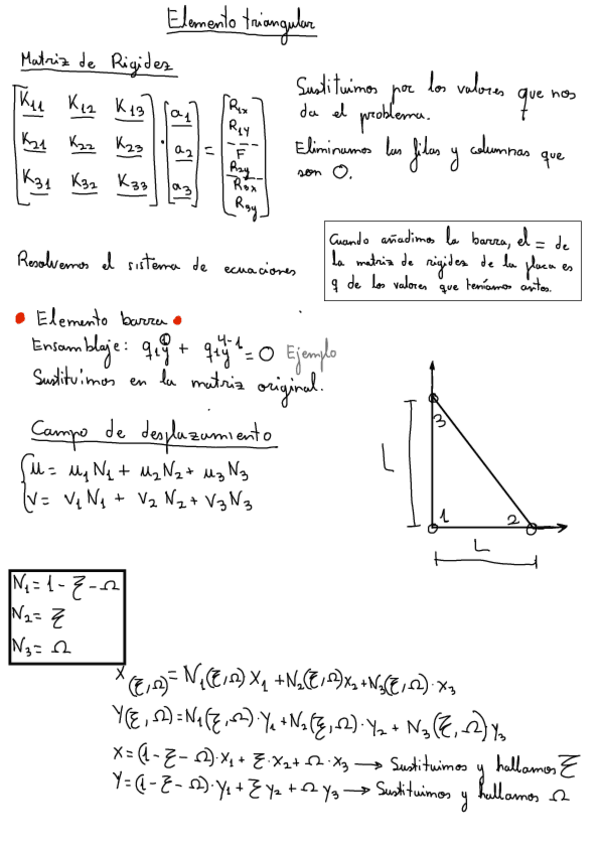 Elemento triangular
Matriz de Rigidez
[K11 K12 K13] [a1] [R1x
K21 K22 K23 · a2 = R1y
K31 K32 K33] [a3] F
R2y
R3x
R3y]
Sustituimos por los valores que nos
da el problema.
Eliminamos las filas y columnas que
son 0.
Cuando añadimos la barra, el = de
la matriz de rigidez de la placa es
q de los valores que teníamos antes.
Resolvemos el sistema de ecuaciones
• Elemento barra •
Ensamblaje: q1y^① + q1y^4-1 = 0 Ejemplo
Sustituimos en la matriz original.
Campo de desplazamiento
{u = u1N1 + u2N2 + u3N3
v = v1N1 + v2N2 + v3N3
3
L
1 2
L
N1 = 1 - ξ - Ω
N2 = ξ
N3 = Ω
X(ξ,Ω) = N1(ξ,Ω)X1 + N2(ξ,Ω)X2 + N3(ξ,Ω)·X3
Y(ξ,Ω) = N1(ξ,Ω)·Y1 + N2(ξ,Ω)·Y2 + N3(ξ,Ω)Y3
X = (1-ξ-Ω)·X1 + ξ·X2 + Ω·X3 → Sustituimos y hallamos ξ
Y = (1-ξ-Ω)·Y1 + ξY2 + ΩY3 → Sustituimos y hallamos Ω